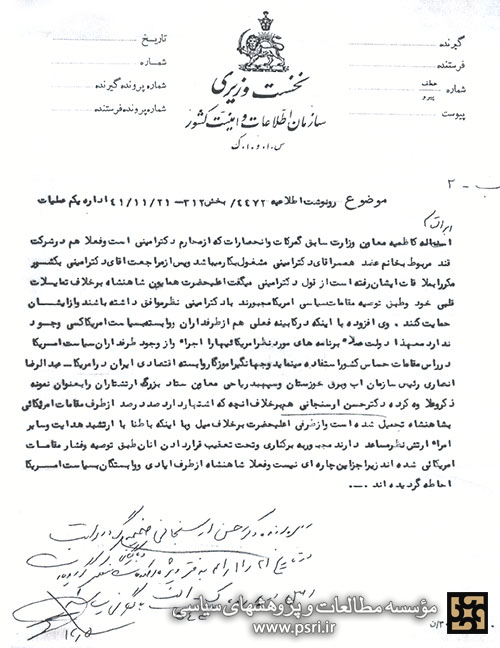 گیرنده
فرستنده
شماره عطف پیرو
پیوست
تاریخ
شماره
شماره پرونده گیرنده
شماره پرونده فرستنده
نخست وزیری
سازمان اطلاعات و امنیت کشور
س.ا.و.ا.ک
ب - ۲
موضوع رونوشت اطلاعیه ۴۴۷۲/ بخش ۳۱۲ - ۴۱/۱۱/۲۱ اداره یکم عملیات
اسداله کاظمیه معاون وزارت سابق گمرکات وانحصارات که ازمحارم دکترامینی است وفعلا هم درشرکت
قند مربوط بخانم عمد همسرآقای دکترامینی مشغول بکارمیباشد وپس ازمراجعت آقای دکترامینی بکشور
مکرربملاقات ایشان رفته است از قول دکترامینی میگفت اعلیحضرت همایون شاهنشاه برخلاف تمایلات
قلبی خود وطبق توصیه مقامات سیاسی آمریکامجبورند بادکترامینی نظرموافق داشته باشند وازایشان
حمایت کنند . وی افزوده با اینکه درکابینه فعلی هم ازطرفداران ووابسته بسیاست آمریکاکسی وجود
ندارد معهذا دولت عملا" برنامه های موردنظرآمریکائیهارا اجرا" وازوجود طرفداران سیاست آمریکا
دررأس مقامات حساس کشوراستفاده مینماید وجهانگیرآموزگاروابسته اقتصادی ایران درآمریکا - عبدالرضا
انصاری رئیس سازمان آب وبرق خوزستان وسپهبد ریاحی معاون ستاد بزرگ ارتشتاران رابعنوان نمونه
ذکروعلاوه کرده دکترحسن ارسنجانی هم برخلاف آنچه که اشتهاردارد صددرصد ازطرف مقامات آمریکائی
بشاهنشاه تحمیل شده است وازطرفی اعلیحضرت برخلاف میل وبا اینکه باطنا با ارتشبد هدایت وسایر
امراء ارتش نظرمساعد دارند مجبوربه برکناری وتحت تعقیب قراردادن آنان طبق توصیه وفشار مقامات
آمریکائی شده اند زیرا جزاین چاره ای نیست وفعلا شاهنشاه ازطرف ایادی ووابستگان بسیاست آمریکا
احاطه گردیده اند .
در پرونده دکتر حسن ارسنجانی
مؤسسه مطالعات و پژوهشهای سیاسی
www.psri.ir